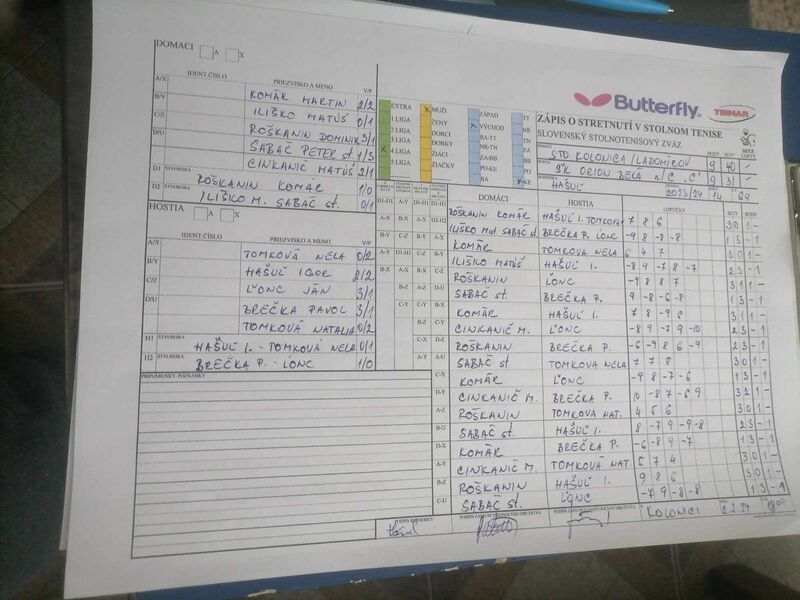 DOMÁCI A X
IDENT.ČÍSLO PRIEZVISKO A MENO V/P
A/X KOMÁR MARTIN 2/2
B/Y ILIŠKO MATÚŠ 0/1
C/Z ROŠKANIN DOMINIK 3/1
D/U SABAČ PETER st. 1/3
CINKANIČ MATÚŠ 2/1
D1 ŠTVORHRA ROŠKANIN KOMAR 1/0
D2 ILIŠKO M. SABAČ st. 0/1
HOSTIA A X
IDENT.ČÍSLO PRIEZVISKO A MENO V/P
A/X TOMKOVÁ NELA 0/2
B/Y HAŠUĽ IGOR 2/2
C/Z ĽONC JÁN 3/1
D/U BREČKA PAVOL 3/1
TOMKOVÁ NATALIA 0/2
H1 ŠTVORHRA HAŠUĽ I. - TOMKOVÁ NELA 0/1
H2 ŠTVORHRA BREČKA P. - ĽONC 1/0
PRIPOMIENKY, POZNÁMKY
EXTRA X MUŽI ZÁPAD TT
1.LIGA ŽENY X VÝCHOD NR
2.LIGA DORCI BA-TT ZA
3.LIGA DORKY NR-TN BB
X 4.LIGA ŽIACI ZA-BB PO
5.LIGA ŽIAČKY PO-KE KE
Butterfly TIBHAR
ZÁPIS O STRETNUTÍ V STOLNOM TENISE
SLOVENSKÝ STOLNOTENISOVÝ ZVÄZ
STO KOLONICA/LADOMIROV 9 40
ŠK ORION BELÁ n/C "C" 9 31
HAŠUĽ 2023/24 14 64
DOMÁCI HOSTIA LOPTIČKY SETY BODY
ROŠKANIN KOMÁR HAŠUĽ I. TOMKOVA 7 8 6 3 0 1 -
ILIŠKO Mat SABAČ st. BREČKA P. ĽONC -9 8 -8 -8 1 3 - 1
KOMÁR TOMKOVA NELA 6 4 7 3 0 1 -
ILIŠKO MATÚŠ HAŠUĽ I. -8 9 -7 8 -7 2 3 - 1
ROŠKANIN ĽONC -9 8 8 7 3 1 1 -
SABAČ st. BREČKA P. 9 -8 -6 -8 1 3 - 1
KOMÁR HAŠUĽ I. 7 8 -9 8 3 1 1 -
CINKANIČ M. ĽONC -8 9 -7 9 -10 2 3 - 1
ROŠKANIN BREČKA P. -6 -9 8 6 -9 2 3 - 1
SABAČ st TOMKOVA NELA 7 7 8 3 0 1 -
KOMÁR ĽONC -9 8 -7 -6 1 3 - 1
CINKANIČ M. BREČKA P. 10 -8 7 -6 9 3 2 1 -
ROŠKANIN TOMKOVA NAT. 4 5 6 3 0 1 -
SABAČ st. HAŠUĽ I. 8 -7 9 -9 -8 2 3 - 1
KOMÁR BREČKA P. -6 -8 9 -7 1 3 - 1
CINKANIČ M. TOMKOVÁ NAT 5 7 4 3 0 1 -
ROŠKANIN HAŠUĽ I. 9 8 6 3 0 1 -
SABAČ st. ĽONC -7 9 -8 -8 1 3 - 1
KOLONICI 2.2.24